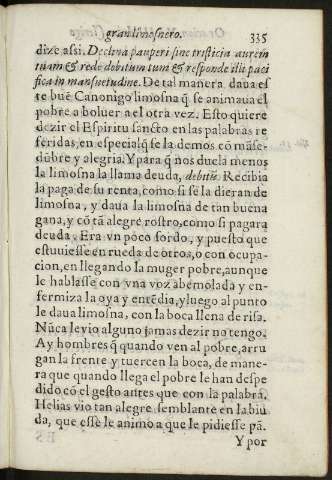 gran limosnero. 335
dize assi. Declina pauperi sine tristicia aurem
tuam & rede debitum tuum & responde illi paci
fica in mansuetudine. De tal manera daua es
te buē Canonigo limosna q̄ se animaua el
pobre a boluer a el otra vez. Esto quiere
dezir el Espiritu sancto en las palabras re
feridas, en especial q̄ se la demos cō māse-
dūbre y alegria. Y para q̄ nos duela menos
la limosna la llama deuda, debitū. Recibia
la paga de su renta, como si se la dieran de
limosna, y daua la limosna de tan buena
gana, y cō tā alegre rostro, como si pagara
deuda. Era vn poco sordo, y puesto que
estuuiesse en rueda de otros, o con ocupa-
cion, en llegando la muger pobre, aunque
le hablasse con vna voz abemolada y en-
fermiza la oya y entēdia, y luego al punto
le daua limosna, con la boca llena de risa.
Nūca le vio alguno jamas dezir no tengo.
Ay hombres q̄ quando ven al pobre, arru
gan la frente y tuercen la boca, de mane-
ra que quando llega el pobre le han despe
dido cō el gesto antes que con la palabra.
Helias vio tan alegre semblante en la biu
da, que esse le animo a que le pidiesse pā.
Y por